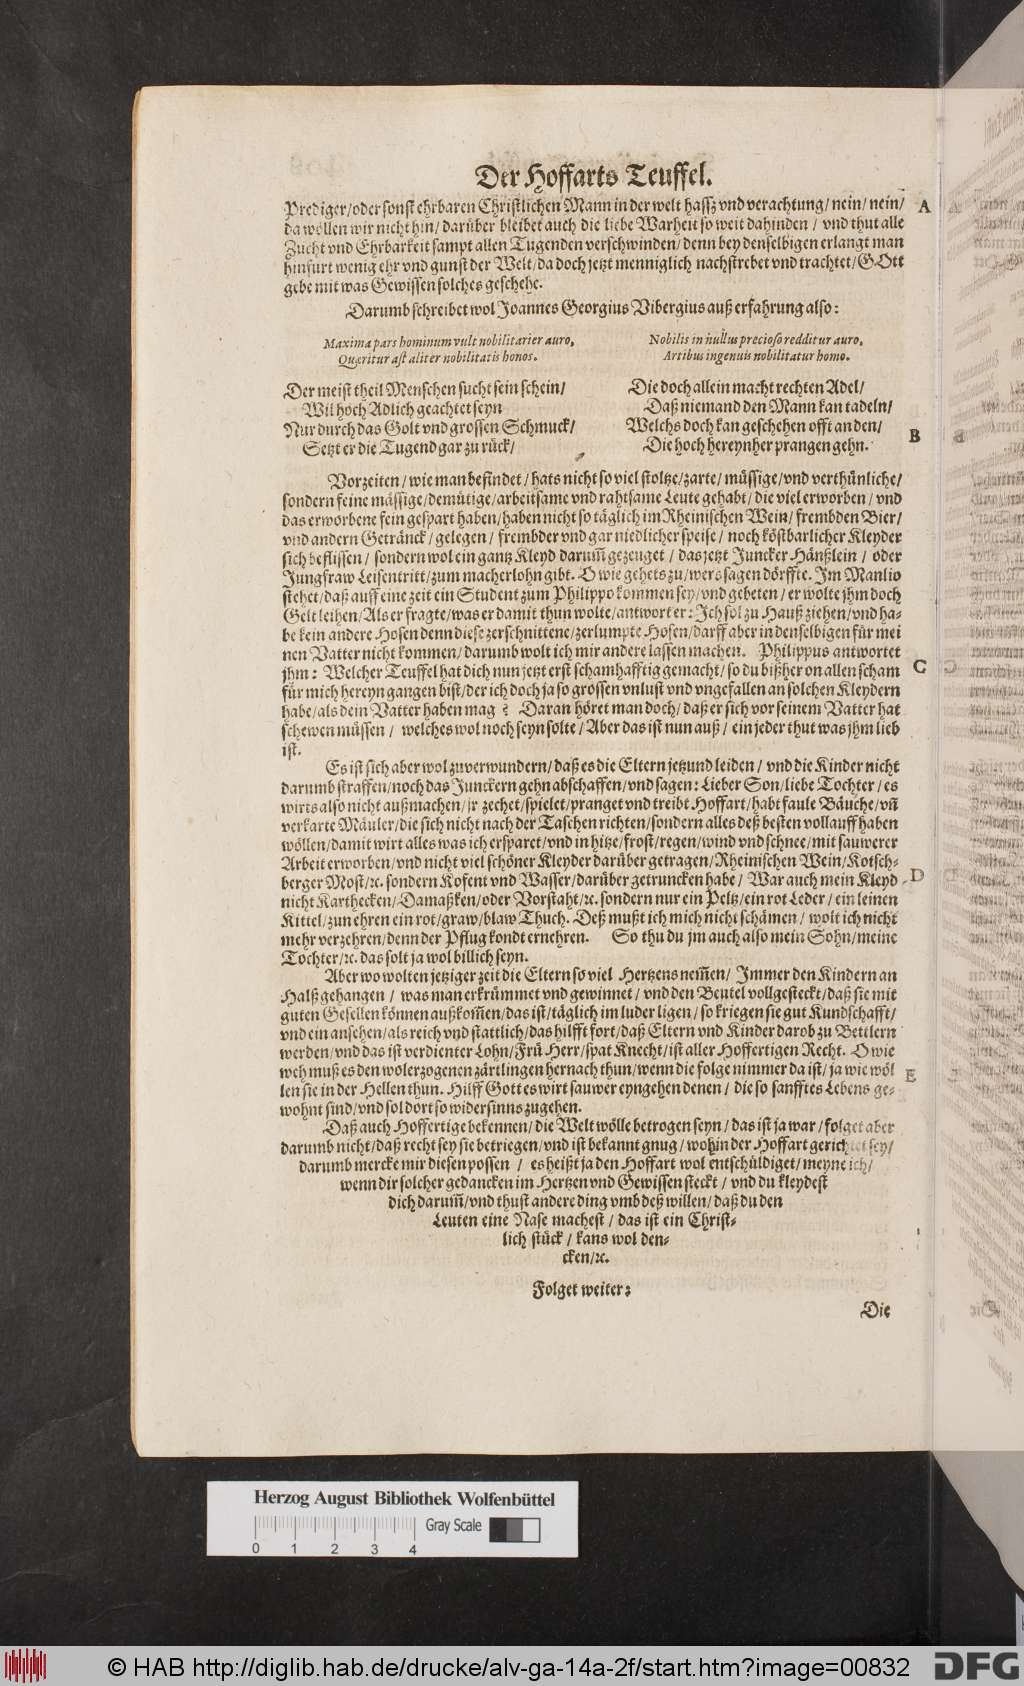 Der Hoffarts Teuffel.
Prediger/oder sonst ehrbaren Christlichen Mann in der welt hassz vnd verachtung/ nein/ nein/ A
da wöllen wir nicht hin/ darüber bleibet auch die liebe Warheit so weit dahinden / vnd thut alle
Zucht vnd Ehrbarkeit sampt allen Tugenden verschwinden/ denn bey denselbigen erlangt man
hinfurt wenig ehr vnd gunst der Welt/ da doch jetzt menniglich nachstrebet vnd trachtet/ GOtt
gebe mit was Gewissen solches geschehe.
Darumb schreibet wol Joannes Georgius Vibergius auß erfahrung also:
Maxima pars hominum vult nobilitarier auro,
Quæritur ast aliter nobilitatis honos.
Nobilis in nullus precioso redditur auro,
Artibus ingenuis nobilitatur homo.
Der meist theil Menschen sucht sein schein/
Wil hoch Adlich geachtet seyn
Nur durch das Golt vnd grossen Schmuck/
Setzt er die Tugend gar zu rück/
Die doch allein macht rechten Adel/
Daß niemand den Mann kan tadeln/
Welchs doch kan geschehen offt an den/
Die hoch hereynher prangen gehn.
B
Vorzeiten / wie man befindet / hats nicht so viel stoltze/ zarte/ müssige/ vnd verthünliche/
sondern feine mässige/demütige/arbeitsame vnd rahtsame Leute gehabt/ die viel erworben / vnd
das erworbene fein gespart haben/ haben nicht so täglich im Rheinischen Wein/ frembden Bier/
vnd andern Getränck/ gelegen / frembder vnd gar niedlicher speise / noch köstbarlicher Kleyder
sich beflissen / sondern wol ein gantz Kleyd darum̃ gezeuget / das jetzt Juncker Hänßlein / oder
Jungfraw Leisentritt/ zum macherlohn gibt. O wie gehets zu/ wers sagen dörffte. Im Manlio
stehet/ daß auff eine zeit ein Student zum Philippo kommen sey/ vnd gebeten / er wolte jhm doch
Gelt leihen/ Als er fragte/ was er damit thun wolte/ antwort er: Ich sol zu Hauß ziehen/ vnd ha-
be kein andere Hosen denn diese zerschnittene/ zerlumpte Hosen/ darff aber in denselbigen für mei
nen Vatter nicht kommen/ darumb wolt ich mir andere lassen machen. Philippus antwortet
jhm: Welcher Teuffel hat dich nun jetzt erst schamhafftig gemacht/ so du bißher on allen scham C
für mich hereyn gangen bist/ der ich doch ja so grossen vnlust vnd vngefallen an solchen Kleydern
habe/ als dein Vatter haben mag? Daran höret man doch/ daß er sich vor seinem Vatter hat
schewen müssen / welches wol noch seyn solte/ Aber das ist nun auß / ein jeder thut was jhm lieb
ist.
Es ist sich aber wol zuverwundern/ daß es die Eltern jetzund leiden / vnd die Kinder nicht
darumb straffen/ noch das Junckern gehn abschaffen/ vnd sagen: Lieber Son/ liebe Tochter/ es
wirts also nicht außmachen/ jr zechet/ spielet/ pranget vnd treibt Hoffart/ habt faule Bäuche/ vñ
verkarte Mäuler/ die sich nicht nach der Taschen richten/ sondern alles deß besten vollauff haben
wöllen/ damit wirt alles was ich ersparet/ vnd in hitze/ frost/ regen/ wind vnd schnee/ mit sauwerer
Arbeit erworben/ vnd nicht viel schöner Kleyder darüber getragen/ Rheinischen Wein/ Kotsch-
berger Most/ ꝛc. sondern Kofent vnd Wasser/ darüber getruncken habe / War auch mein Kleyd D
nicht Karthecken/ Damaßken/ oder Vorstaht/ ꝛc. sondern nur ein Peltz/ ein rot Leder / ein leinen
Kittel/ zun ehren ein rot/ graw/ blaw Thuch. Deß mußt ich mich nicht schämen / wolt ich nicht
mehr verzehren/ denn der Pflug kondt ernehren. So thu du jm auch also mein Sohn/ meine
Tochter/ ꝛc. das solt ja wol billich seyn.
Aber wo wolten jetziger zeit die Eltern so viel Hertzens nem̃en/ Immer den Kindern an
Halß gehangen / was man erkrümmet vnd gewinnet / vnd den Beutel vollgesteckt/ daß sie mit
guten Gesellen können außkom̃en/ das ist/ täglich im luder ligen/ so kriegen sie gut Kundschafft/
vnd ein ansehen/ als reich vnd stattlich/ das hilfft fort/ daß Eltern vnd Kinder darob zu Bettlern
werden/ vnd das ist verdienter Lohn/ Frü Herr/ spat Knecht/ ist aller Hoffertigen Recht. O wie
weh muß es den wolerzogenen zärtlingen hernach thun/ wenn die folge nimmer da ist/ ja wie wöl E
len sie in der Hellen thun. Hilff Gott es wirt sauwer eyngehen denen / die so sanfftes Lebens ge-
wohnt sind/ vnd sol dort so widersinns zugehen.
Daß auch Hoffertige bekennen/ die Welt wölle betrogen seyn/ das ist ja war/ folget aber
darumb nicht/ daß recht sey sie betriegen/ vnd ist bekannt gnug/ wohin der Hoffart gerichtet sey/
darumb mercke mir diesen possen / es heißt ja den Hoffart wol entschüldiget/ meyne ich/
wenn dir solcher gedancken im Hertzen vnd Gewissen steckt / vnd du kleydest
dich darum̃/ vnd thust andere ding vmb deß willen/ daß du den
Leuten eine Nase machest / das ist ein Christ-
lich stück / kans wol den-
cken/ ꝛc.
Folget weiter:
Die
Herzog August Bibliothek Wolfenbüttel
Gray Scale
0 1 2 3 4
© HAB http://diglib.hab.de/drucke/alv-ga-14a-2f/start.htm?image=00832
DFG